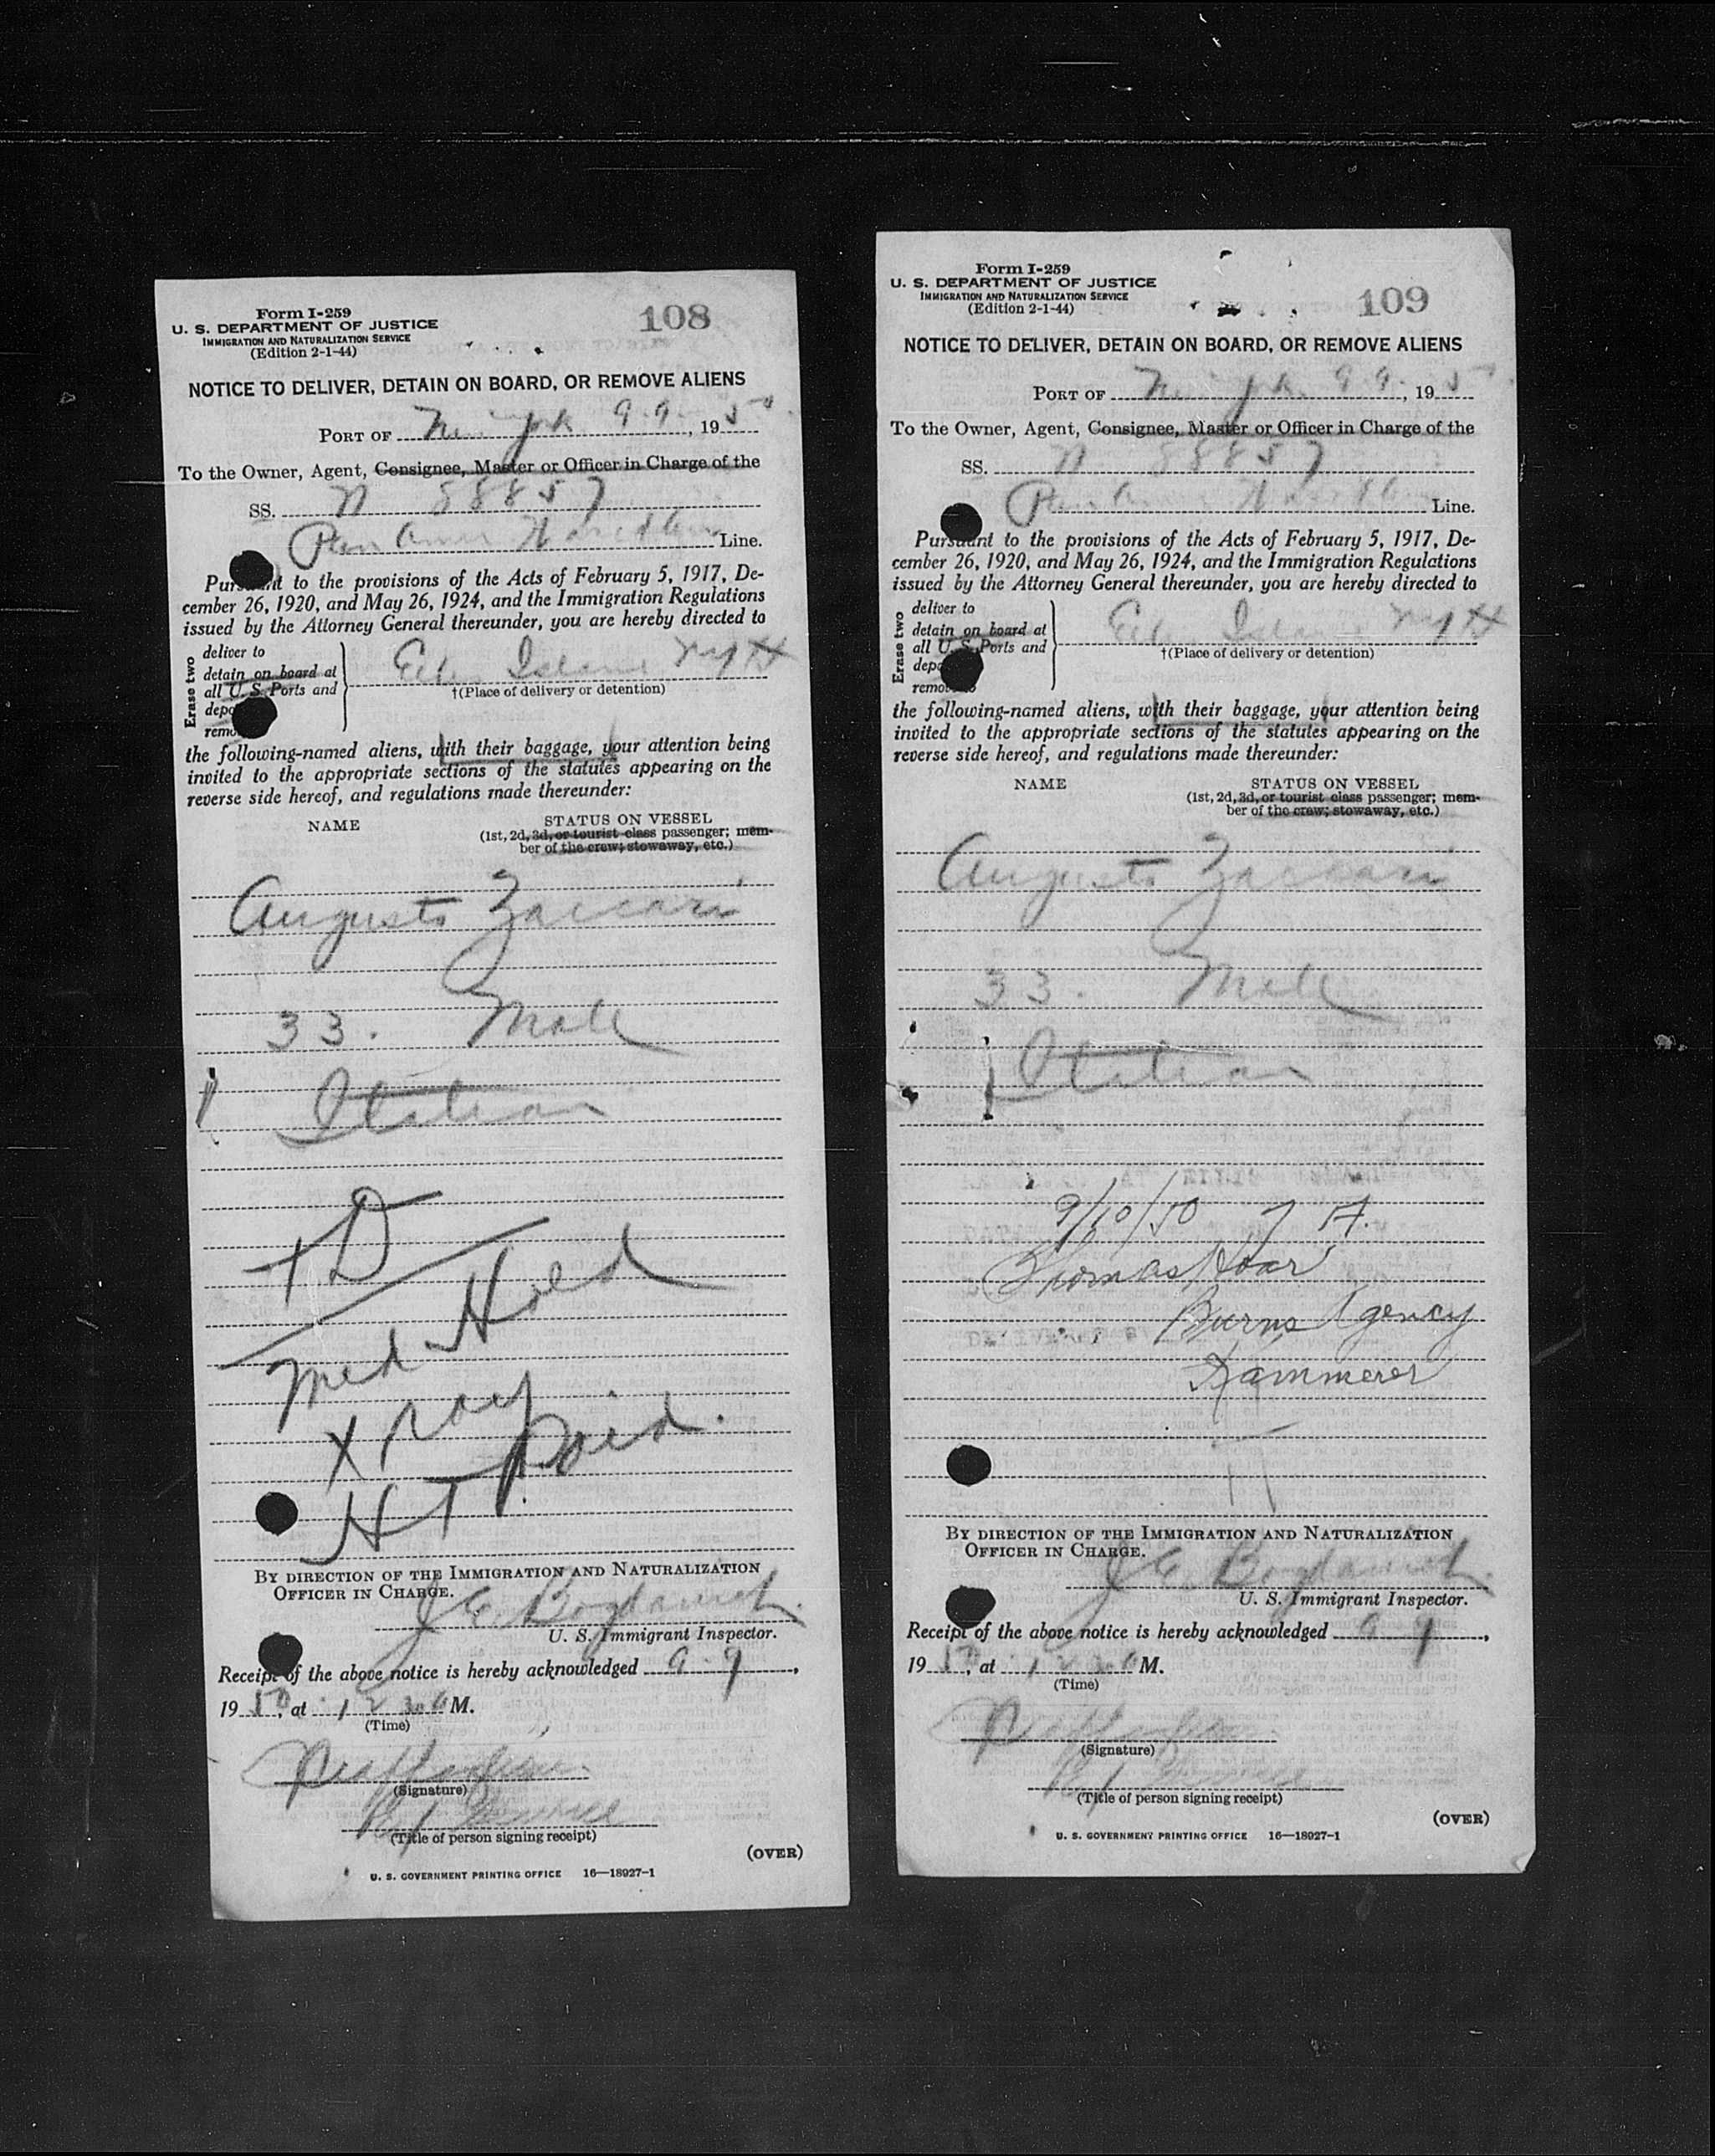 Form I-259
U. S. DEPARTMENT OF JUSTICE
IMMIGRATION AND NATURALIZATION SERVICE
(Edition 2-1-44)
108
NOTICE TO DELIVER, DETAIN ON BOARD, OR REMOVE ALIENS
PORT OF New York 9.9., 1950
To the Owner, Agent, Consignee, Master or Officer in Charge of the
SS. N 88857
Pan Amer World Line.
Pursuant to the provisions of the Acts of February 5, 1917, De-
cember 26, 1920, and May 26, 1924, and the Immigration Regulations
issued by the Attorney General thereunder, you are hereby directed to
Erase two
deliver to
detain on board at
all U. S. Ports and
depo
remo
Ellis Island NYH
†(Place of delivery or detention)
the following-named aliens, with their baggage, your attention being
invited to the appropriate sections of the statutes appearing on the
reverse side hereof, and regulations made thereunder:
NAME
STATUS ON VESSEL
(1st, 2d, 3d, or tourist class passenger; mem-
ber of the crew; stowaway, etc.)
Augusto Zaccari
33. Male
Italian
TD
Med Hold
X Ray
HT Paid.
BY DIRECTION OF THE IMMIGRATION AND NATURALIZATION
OFFICER IN CHARGE.
J E
U. S. Immigrant Inspector.
Receipt of the above notice is hereby acknowledged 9-9,
1950, at 12 30 A M.
(Time)
(Signature)
(Title of person signing receipt)
(OVER)
U. S. GOVERNMENT PRINTING OFFICE 16—18927-1
Form I-259
U. S. DEPARTMENT OF JUSTICE
IMMIGRATION AND NATURALIZATION SERVICE
(Edition 2-1-44)
109
NOTICE TO DELIVER, DETAIN ON BOARD, OR REMOVE ALIENS
PORT OF New York 9 9., 1950
To the Owner, Agent, Consignee, Master or Officer in Charge of the
SS. N 88857
Pan Amer World Line.
Pursuant to the provisions of the Acts of February 5, 1917, De-
cember 26, 1920, and May 26, 1924, and the Immigration Regulations
issued by the Attorney General thereunder, you are hereby directed to
Erase two
deliver to
detain on board at
all U. S. Ports and
depo
remo
Ellis Island NYH
†(Place of delivery or detention)
the following-named aliens, with their baggage, your attention being
invited to the appropriate sections of the statutes appearing on the
reverse side hereof, and regulations made thereunder:
NAME
STATUS ON VESSEL
(1st, 2d, 3d, or tourist class passenger; mem-
ber of the crew; stowaway, etc.)
Augusto Zaccari
33. Male
Italian
9/10/50 7 A.
Thomas Hoar
Burns Agency
Kammerer
BY DIRECTION OF THE IMMIGRATION AND NATURALIZATION
OFFICER IN CHARGE.
J E
U. S. Immigrant Inspector.
Receipt of the above notice is hereby acknowledged 9 9,
1950, at 12 30 A M.
(Time)
(Signature)
(Title of person signing receipt)
(OVER)
U. S. GOVERNMENT PRINTING OFFICE 16—18927-1